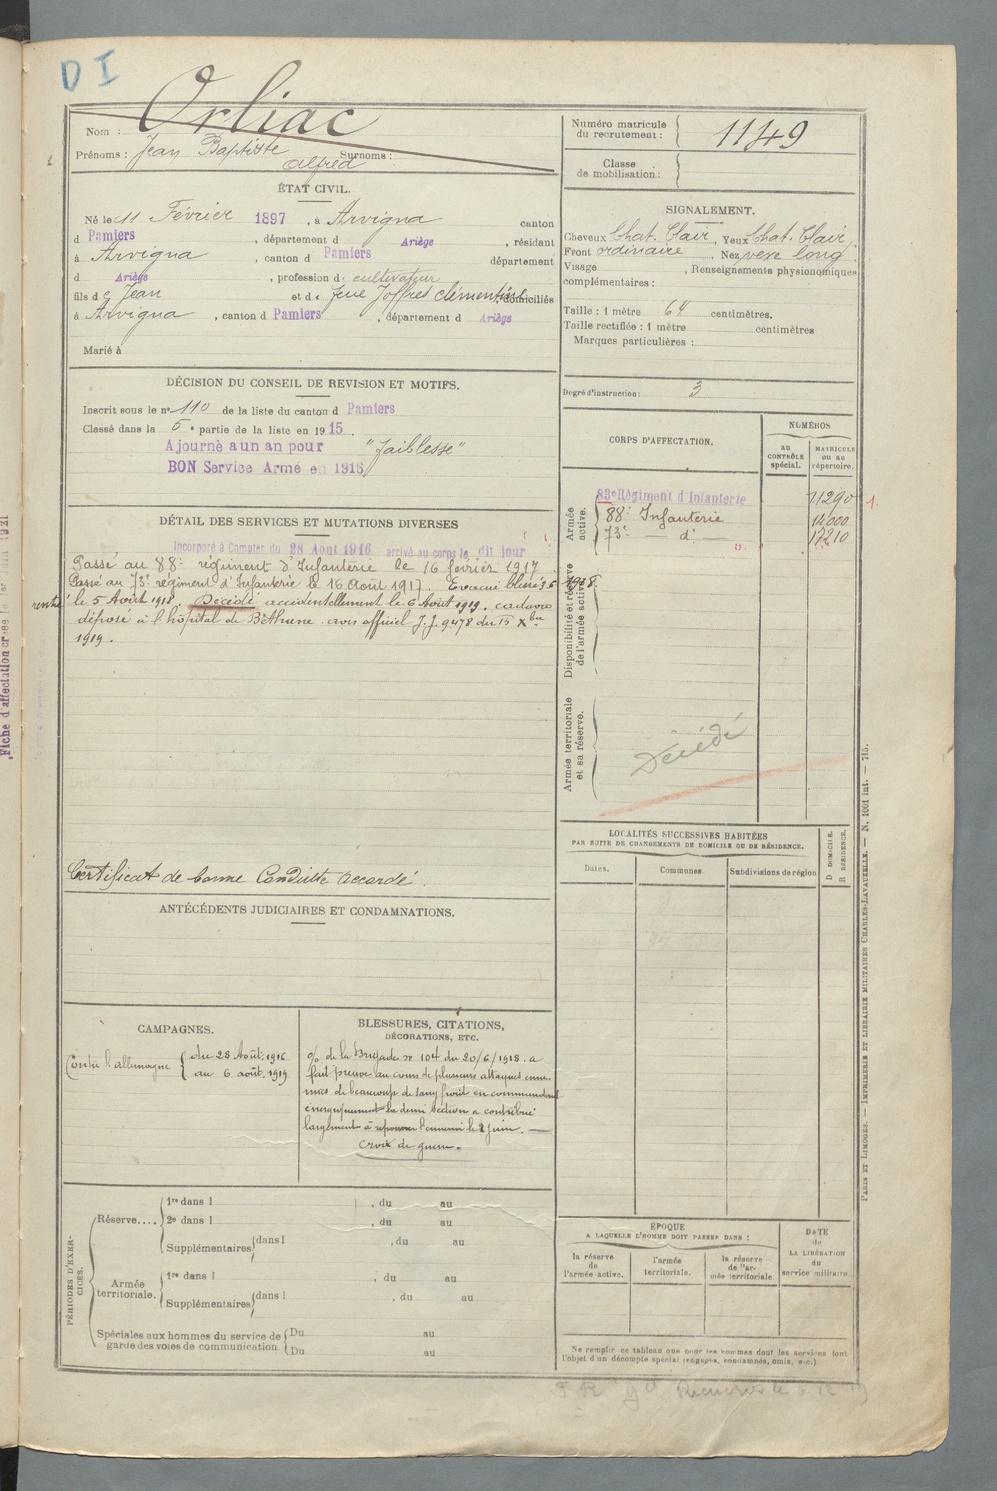 D I
Orliac
Nom :
Prénoms : Jean Baptiste Surnoms :
Alfred
ÉTAT CIVIL.
Né le 11 Février 1897, à Arvigna canton
d Pamiers, département d Ariège, résidant
à Arvigna, canton d Pamiers département
d Ariège, profession d. cultivateur
fils de Jean et de Joffres Clémentine, domiciliés
à Arvigna, canton d Pamiers, département d Ariège
Marié à
DÉCISION DU CONSEIL DE REVISION ET MOTIFS.
Inscrit sous le n° 110 de la liste du canton d Pamiers
Classé dans la 5e partie de la liste en 1915.
Ajourné a un an pour "faiblesse"
BON Service Armé en 1916
DÉTAIL DES SERVICES ET MUTATIONS DIVERSES
Incorporé à Compter du 28 Aout 1916 arrivé au corps le dit jour
Passé au 88e régiment d'Infanterie le 16 février 1917
Passé au 73e régiment d'Infanterie le 16 Août 1917. Evacué blessé 3 6 1918.
rentré le 5 Août 1918. Décédé accidentellement le 6 Août 1919. cadavre
déposé à l'hôpital de Béthune. avis officiel J.J. 9478 du 15 Xbre
1919.
Certificat de bonne Conduite accordé.
ANTÉCÉDENTS JUDICIAIRES ET CONDAMNATIONS.
CAMPAGNES.
Contre l'allemagne { du 28 Août. 1916
au 6 août. 1919
BLESSURES, CITATIONS,
DÉCORATIONS, ETC.
% de la Brigade n° 104 du 20/6/1918. a
fait preuve au cours de plusieurs attaques enne-
mies de beaucoup de sang froid en commandant
énergiquement la demi section a contribué
largement à repousser l'ennemi le 2 juin. —
croix de guerre.
PÉRIODES D'EXER-
CICES.
Réserve.... 1re dans l , du au
2e dans l , du au
Supplémentaires dans l , du au
Armée
territoriale. 1re dans l , du au
Supplémentaires dans l , du au
Spéciales aux hommes du service de Du au
garde des voies de communication Du au
Numéro matricule
du recrutement : 1149
Classe
de mobilisation :
SIGNALEMENT.
Cheveux Chat. Clair, Yeux Chat. Clair
Front ordinaire, Nez vexe long
Visage , Renseignements physionomiques
complémentaires :
Taille : 1 mètre 64 centimètres.
Taille rectifiée : 1 mètre centimètres
Marques particulières :
Degré d'instruction : 3
CORPS D'AFFECTATION.
NUMÉROS
AU
CONTRÔLE
spécial.
MATRICULE
OU AU
répertoire.
Armée
active.
83e Régiment d'Infanterie 11290
88e Infanterie 14000
73e — d° — 17210
Disponibilité et réserve
de l'armée active.
Armée territoriale
et sa réserve.
Décédé
LOCALITÉS SUCCESSIVES HABITÉES
PAR SUITE DE CHANGEMENTS DE DOMICILE OU DE RÉSIDENCE.
D DOMICILE.
R RÉSIDENCE.
Dates. Communes Subdivisions de région
ÉPOQUE
A LAQUELLE L'HOMME DOIT PASSER DANS :
la réserve
de
l'armée active.
l'armée
territoriale.
la réserve
de l'ar-
mée territoriale.
DATE
de
LA LIBÉRATION
du
service militaire.
Ne remplir ce tableau que pour les hommes dont les services font
l'objet d'un décompte spécial (engagés, condamnés, omis, etc.)
PARIS ET LIMOGES. — IMPRIMERIE ET LIBRAIRIE MILITAIRES CHARLES-LAVAUZELLE. — N. 1001 int. — 715.